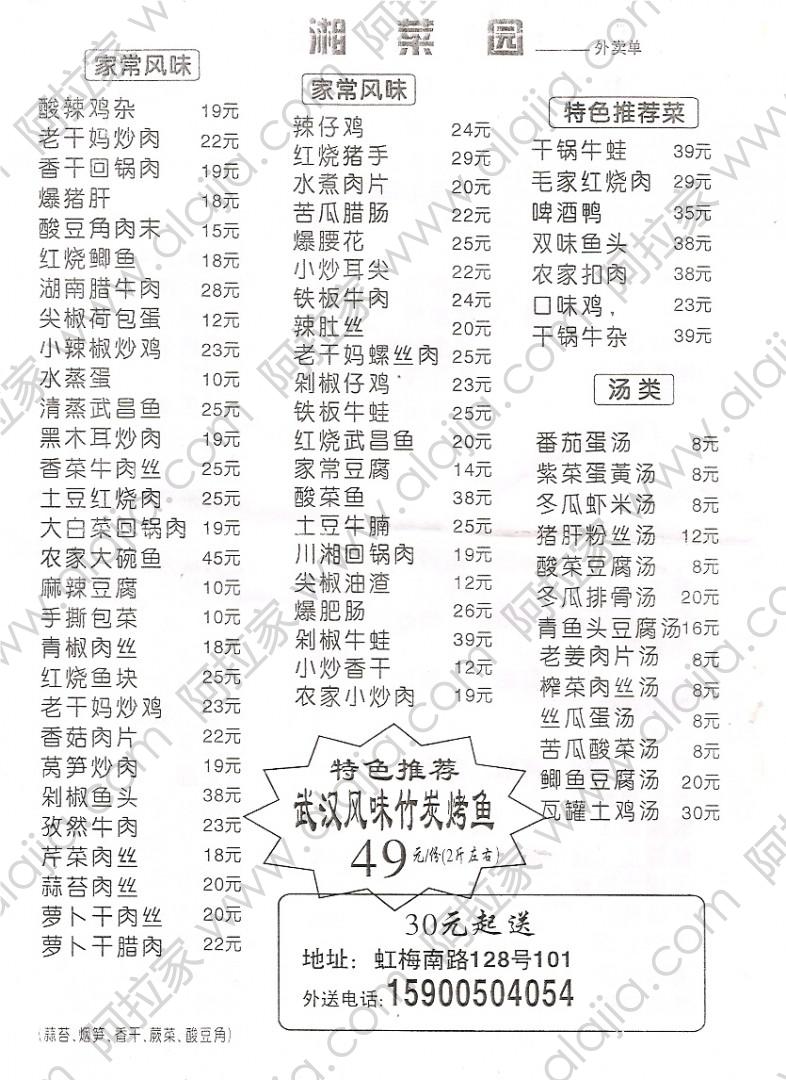 湘菜园——外卖单
家常风味
酸辣鸡杂 19元
老干妈炒肉 22元
香干回锅肉 19元
爆猪肝 18元
酸豆角肉末 15元
红烧鲫鱼 18元
湖南腊牛肉 28元
尖椒荷包蛋 12元
小辣椒炒鸡 23元
水蒸蛋 10元
清蒸武昌鱼 25元
黑木耳炒肉 19元
香菜牛肉丝 25元
土豆红烧肉 25元
大白菜回锅肉 19元
农家大碗鱼 45元
麻辣豆腐 10元
手撕包菜 10元
青椒肉丝 18元
红烧鱼块 25元
老干妈炒鸡 23元
香菇肉片 22元
莴笋炒肉 19元
剁椒鱼头 38元
孜然牛肉 23元
芹菜肉丝 18元
蒜苔肉丝 20元
萝卜干肉丝 20元
萝卜干腊肉 22元
(蒜苔、烟笋、香干、蕨菜、酸豆角)
家常风味
辣仔鸡 24元
红烧猪手 29元
水煮肉片 20元
苦瓜腊肠 22元
爆腰花 25元
小炒耳尖 22元
铁板牛肉 24元
辣肚丝 20元
老干妈螺丝肉 25元
剁椒仔鸡 23元
铁板牛蛙 25元
红烧武昌鱼 20元
家常豆腐 14元
酸菜鱼 38元
土豆牛腩 25元
川湘回锅肉 19元
尖椒油渣 12元
爆肥肠 26元
剁椒牛蛙 39元
小炒香干 12元
农家小炒肉 19元
特色推荐菜
干锅牛蛙 39元
毛家红烧肉 29元
啤酒鸭 35元
双味鱼头 38元
农家扣肉 38元
口味鸡, 23元
干锅牛杂 39元
汤类
番茄蛋汤 8元
紫菜蛋黄汤 8元
冬瓜虾米汤 8元
猪肝粉丝汤 12元
酸菜豆腐汤 8元
冬瓜排骨汤 20元
青鱼头豆腐汤16元
老姜肉片汤 8元
榨菜肉丝汤 8元
丝瓜蛋汤 8元
苦瓜酸菜汤 8元
鲫鱼豆腐汤 20元
瓦罐土鸡汤 30元
特色推荐
武汉风味竹炭烤鱼
49元/份(2斤左右)
30元起送
地址: 虹梅南路128号101
外送电话:15900504054
阿拉家 www.alajia.com